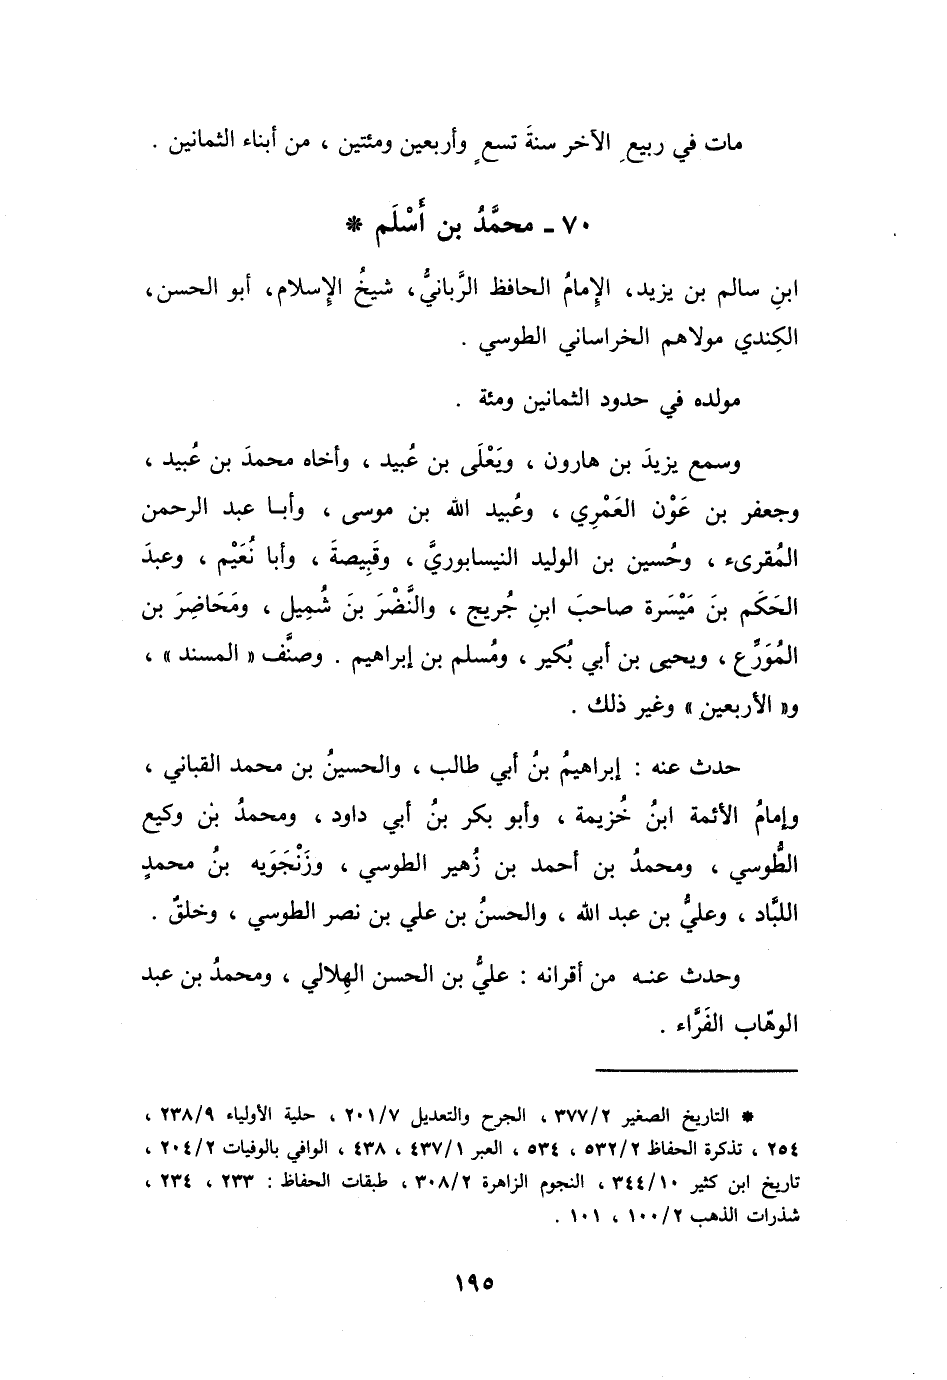 مات في ربيعِ الآخر سنةَ تسعٍ وأربعين ومئتين ، من أبناء الثمانين .
٧٠ ـ محمَّدُ بن أَسْلَم *
ابنِ سالم بن يزيد، الإِمامُ الحافظ الرَّبانيُّ، شيخُ الإِسلام، أبو الحسن،
الكِندي مولاهم الخراساني الطوسي .
مولده في حدود الثمانين ومئة .
وسمع يزيدَ بن هارون ، ويَعْلَى بن عُبيد ، وأخاه محمدَ بن عُبيد ،
وجعفر بن عَوْن العَمْرِي ، وعُبيد الله بن موسى ، وأبا عبد الرحمن
المُقرىء ، وحُسين بن الوليد النيسابوريَّ ، وقَبِيصةَ ، وأبا نُعَيْم ، وعبدَ
الحَكَم بنَ مَيْسَرة صاحبَ ابنِ جُريج ، والنَّضْرَ بنَ شُميل ، ومَحَاضِرَ بن
المُوَرِّع ، ويحيى بن أبي بُكير ، ومُسلم بن إبراهيم . وصنَّف « المسند » ،
و« الأربعين » وغير ذلك .
حدث عنه : إبراهيمُ بنُ أبي طالب ، والحسينُ بن محمد القباني ،
وإمامُ الأئمة ابنُ خُزيمة ، وأبو بكر بنُ أبي داود ، ومحمدُ بن وكيع
الطُّوسي ، ومحمدُ بن أحمد بن زُهير الطوسي ، وزَنْجَوَيه بنُ محمدٍ
اللبَّاد ، وعليُّ بن عبد الله ، والحسنُ بن علي بن نصر الطوسي ، وخلقٌ .
وحدث عنه من أقرانه : عليُّ بن الحسن الهِلالي ، ومحمدُ بن عبد
الوهّاب الفَرَّاء .
* التاريخ الصغير ٣٧٧/٢ ، الجرح والتعديل ٢٠١/٧ ، حلية الأولياء ٢٣٨/٩ ،
٢٥٤ ، تذكرة الحفاظ ٥٣٢/٢ ، ٥٣٤ ، العبر ٤٣٧/١ ، ٤٣٨ ، الوافي بالوفيات ٢٠٤/٢ ،
تاريخ ابن كثير ٣٤٤/١٠ ، النجوم الزاهرة ٣٠٨/٢ ، طبقات الحفاظ : ٢٣٣ ، ٢٣٤ ،
شذرات الذهب ١٠٠/٢ ، ١٠١ .
١٩٥